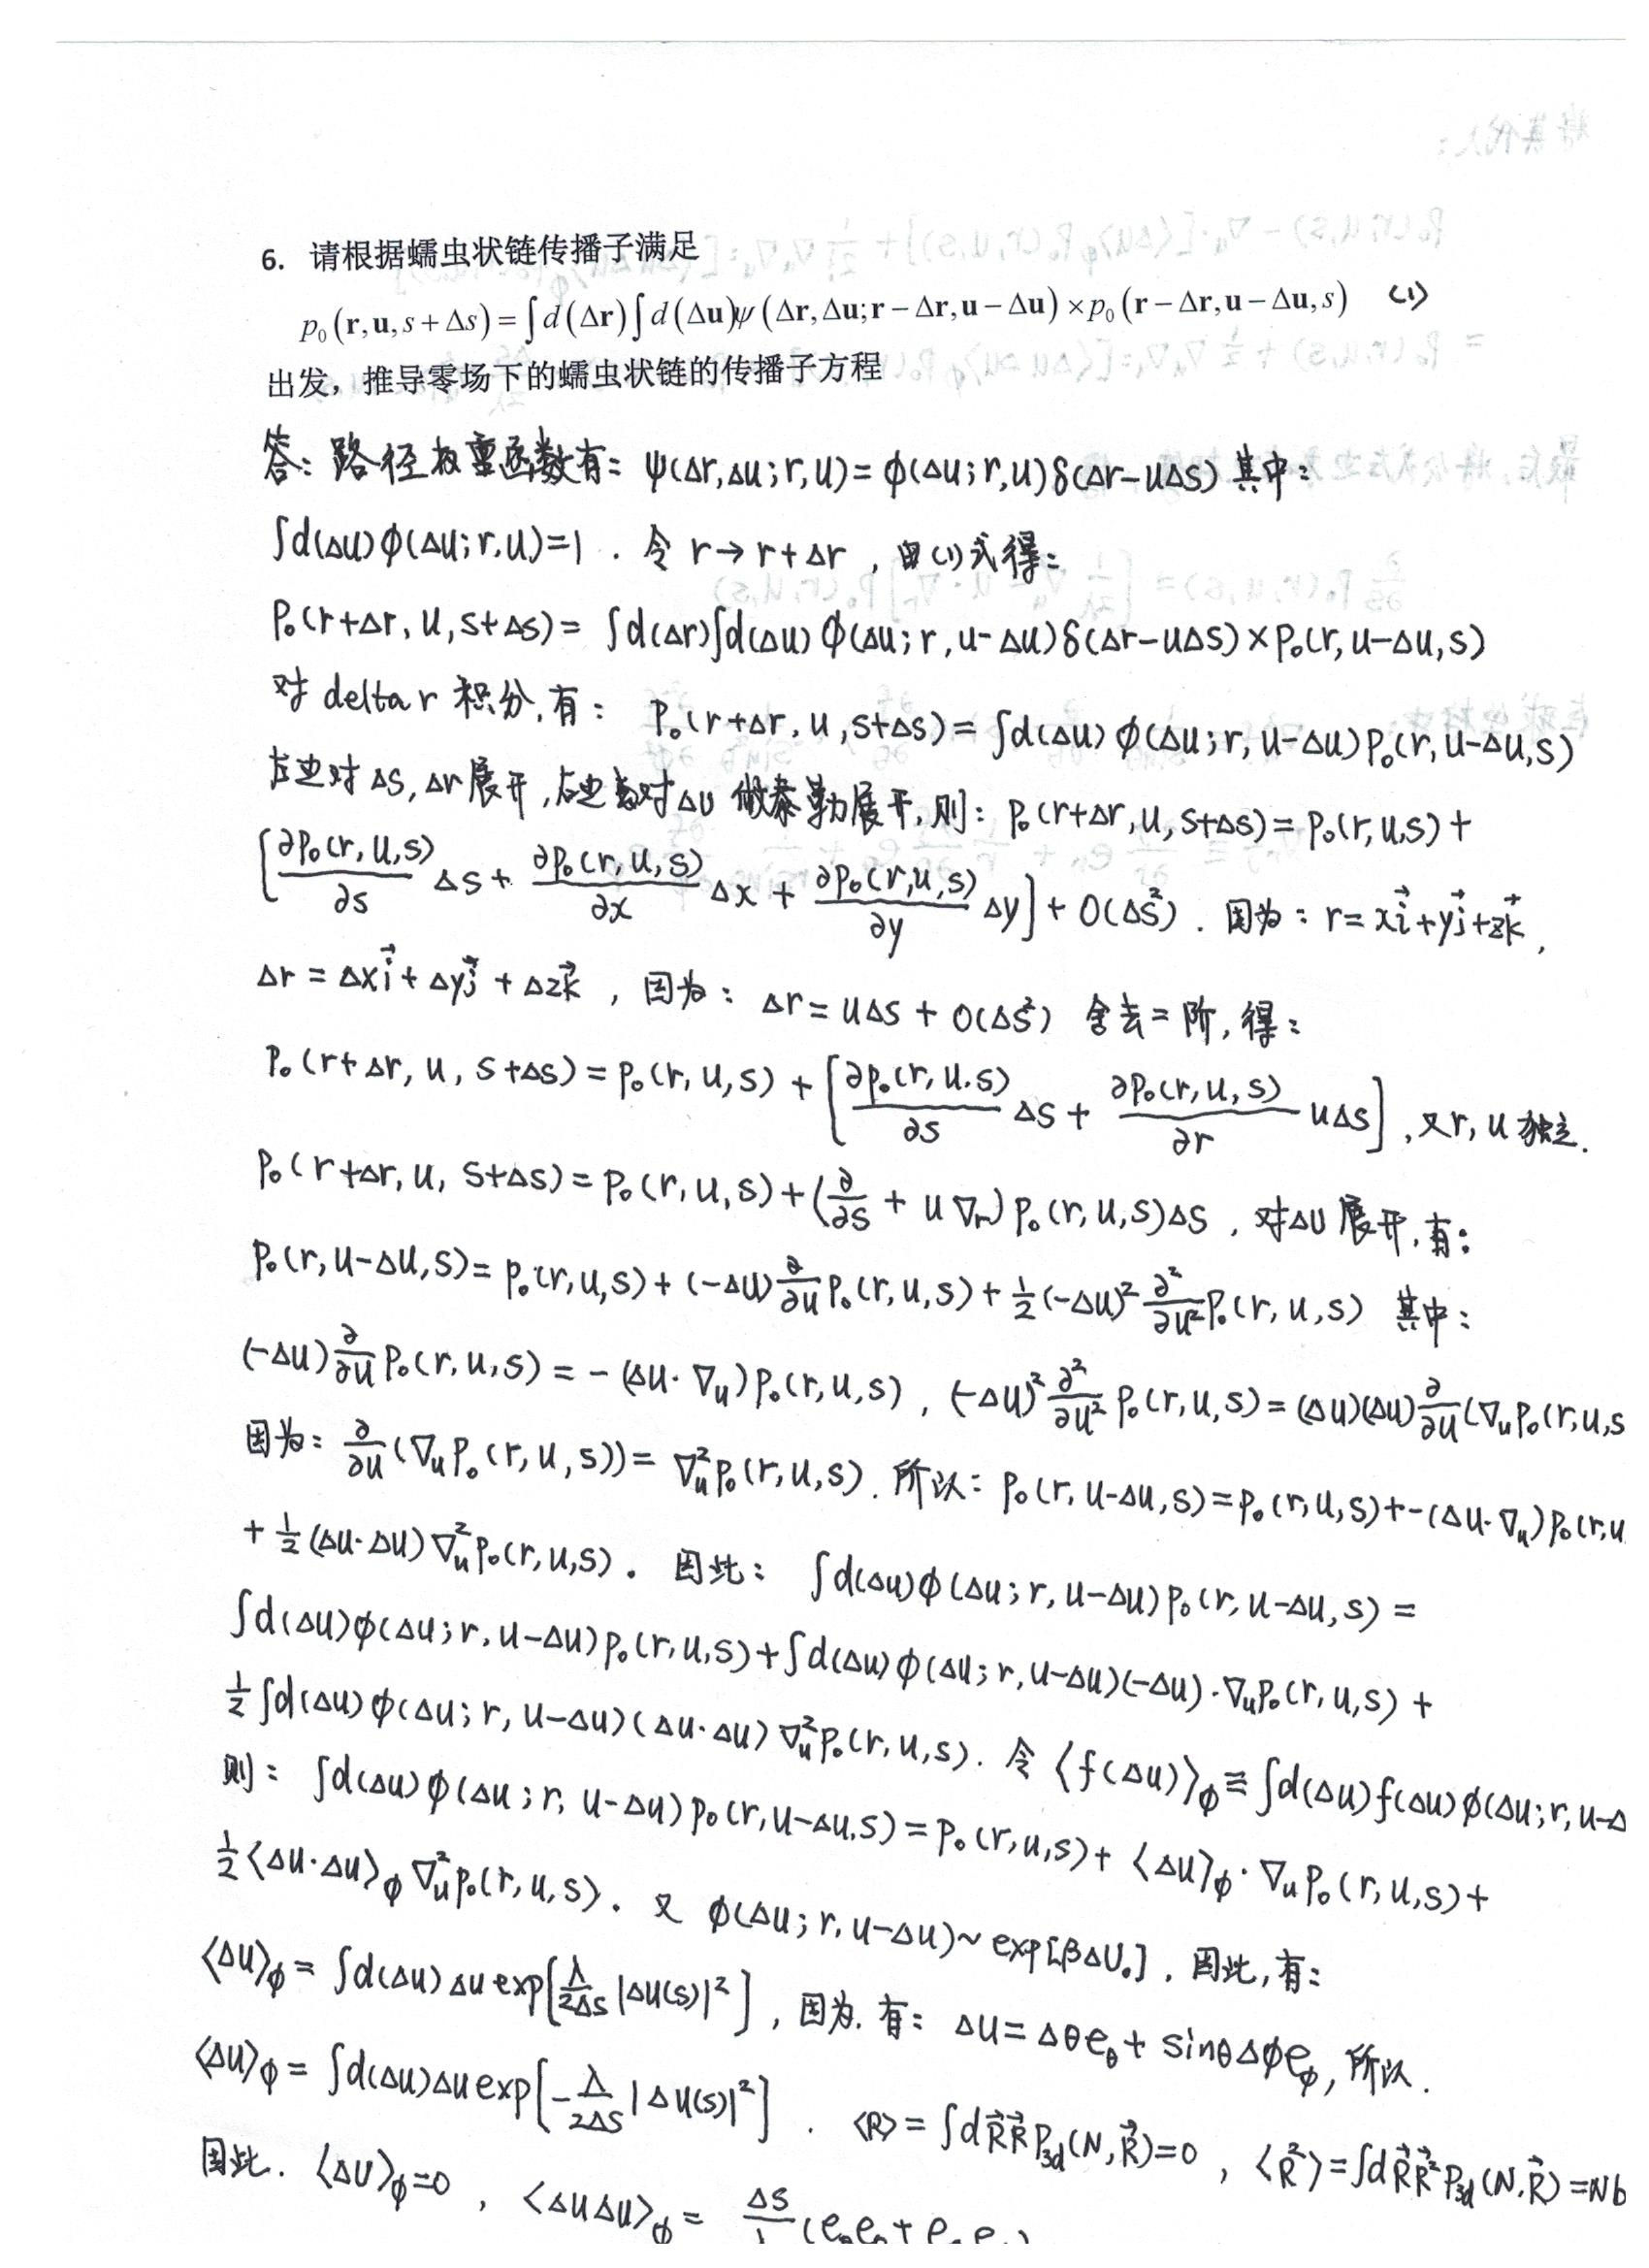 6. 请根据蠕虫状链传播子满足
p₀(r,u,s+Δs)=∫d(Δr)∫d(Δu)ψ(Δr,Δu;r−Δr,u−Δu)×p₀(r−Δr,u−Δu,s) (1)
出发，推导零场下的蠕虫状链的传播子方程
答：路径权重函数有：ψ(Δr,Δu;r,u)=φ(Δu;r,u)δ(Δr−uΔs) 其中：
∫d(Δu)φ(Δu;r,u)=1 . 令 r→r+Δr ，由(1)式得：
P₀(r+Δr, u, s+Δs)= ∫d(Δr)∫d(Δu) φ(Δu; r, u−Δu)δ(Δr−uΔs)×P₀(r, u−Δu, s)
对 delta r 积分,有： P₀(r+Δr, u, s+Δs)= ∫d(Δu) φ(Δu; r, u−Δu)P₀(r, u−Δu, s)
左边对 Δs, Δr 展开,右边对 Δu 做泰勒展开,则：P₀(r+Δr, u, s+Δs)= P₀(r, u,s)+
[∂P₀(r,u,s)/∂s Δs + ∂P₀(r,u,s)/∂x Δx + ∂P₀(r,u,s)/∂y Δy] + O(Δs²) . 因为：r= xi⃗+yj⃗+zk⃗ ,
Δr = Δxi⃗+ Δyj⃗ + Δzk⃗ , 因为： Δr= uΔs + O(Δs²) 舍去二阶, 得：
P₀(r+Δr, u, s+Δs)= P₀(r, u, s) + [∂P₀(r, u, s)/∂s Δs + ∂P₀(r, u, s)/∂r uΔs] , 又r, u 独立.
P₀(r+Δr, u, s+Δs)= P₀(r, u, s)+(∂/∂s + u ∇r) P₀(r, u, s)Δs , 对Δu 展开, 有：
P₀(r, u−Δu, s)= P₀(r,u,s)+ (−Δu)∂/∂u P₀(r, u, s)+ ½(−Δu)² ∂²/∂u² P₀(r, u, s) 其中：
(−Δu)∂/∂u P₀(r, u, s) = − (Δu· ∇u) P₀(r, u, s) , (−Δu)² ∂²/∂u² P₀(r, u, s)= (Δu)(Δu)∂/∂u(∇uP₀(r,u,s
因为：∂/∂u(∇uP₀(r, u, s))= ∇u²P₀(r, u, s). 所以：P₀(r, u−Δu, s)=P₀(r, u, s)+−(Δu·∇u)P₀(r,u
+ ½(Δu·Δu)∇u²P₀(r,u,s) . 因此： ∫d(Δu)φ(Δu; r, u−Δu)P₀(r, u−Δu, s) =
∫d(Δu)φ(Δu; r, u−Δu)P₀(r, u, s)+∫d(Δu)φ(Δu; r, u−Δu)(−Δu)·∇uP₀(r, u, s) +
½∫d(Δu)φ(Δu; r, u−Δu)(Δu·Δu)∇u²P₀(r, u, s). 令 ⟨f(Δu)⟩φ≡∫d(Δu)f(Δu)φ(Δu; r, u−Δ
则： ∫d(Δu)φ(Δu; r, u−Δu)P₀(r, u−Δu,s)= P₀(r, u, s)+ ⟨Δu⟩φ·∇uP₀(r, u, s)+
½⟨Δu·Δu⟩φ∇u²P₀(r, u, s). 又 φ(Δu; r, u−Δu)~exp[βΔU₀] , 因此, 有：
⟨Δu⟩φ= ∫d(Δu)Δu exp[λ/2Δs |Δu(s)|²] , 因为. 有： Δu= Δθeθ+ sinθΔϕeϕ, 所以.
⟨Δu⟩φ= ∫d(Δu)Δu exp[−λ/2Δs |Δu(s)|²] . ⟨R⟩= ∫dR⃗R⃗P₃d(N, R⃗)=0 , ⟨R⃗²⟩=∫dR⃗R⃗²P₃d(N, R⃗)=Nb
因此. ⟨Δu⟩φ=0 , ⟨ΔuΔu⟩φ= Δs